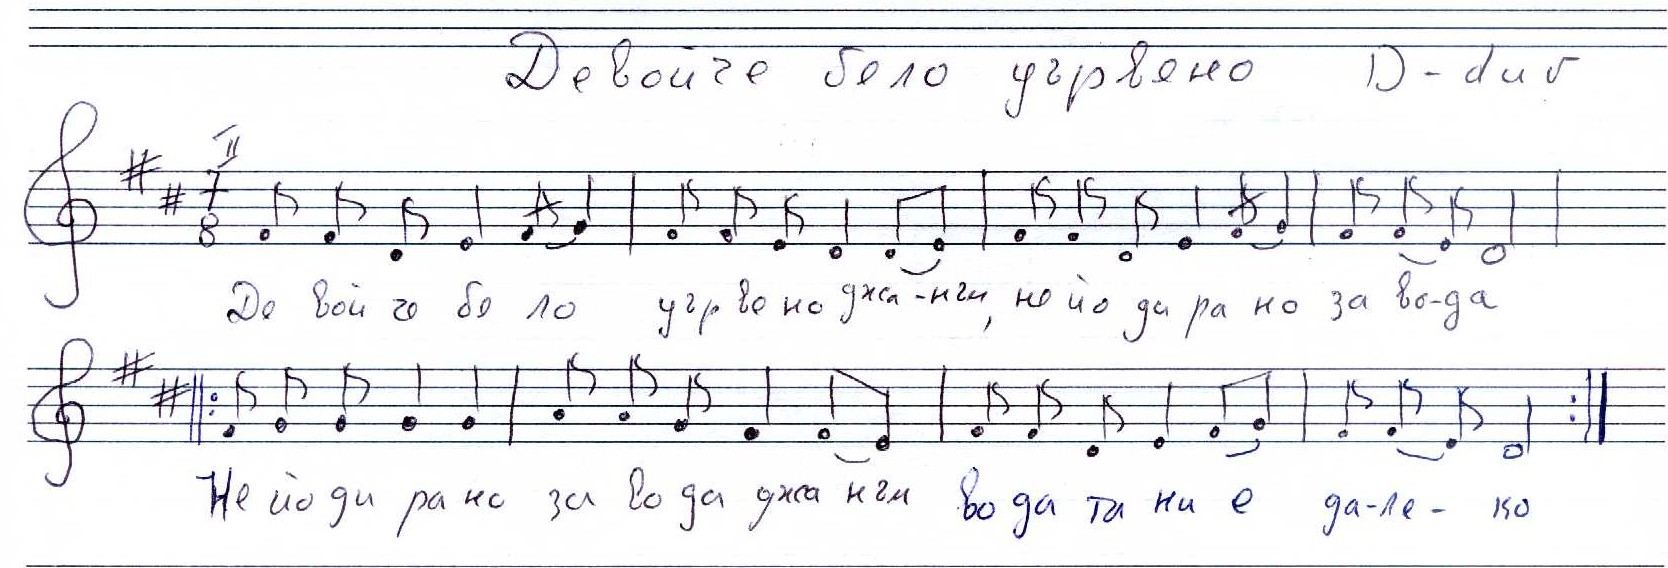 Девойче бело цървено D-dur
II
7
8
Де вой че бе ло цър ве но джа-нъм, не йо ди ра но за во-да
Не йо ди ра но за во да джа нъм во да та ни е да-ле-ко